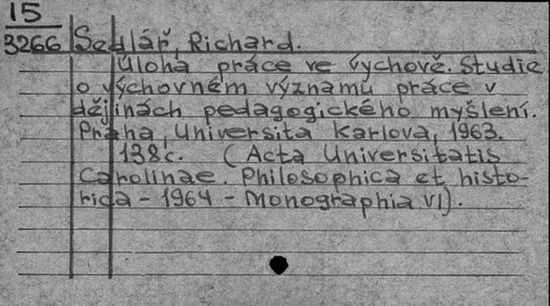 15
3266 Sedlář, Richard.
Úloha práce ve výchově. Studie
o výchovném významu práce v
dějinách pedagogického myšlení.
Praha, Universita Karlova, 1963.
138 č. (Acta Universitatis
Carolinae. Philosophica et histo-
rica - 1964 - Monographia VI).